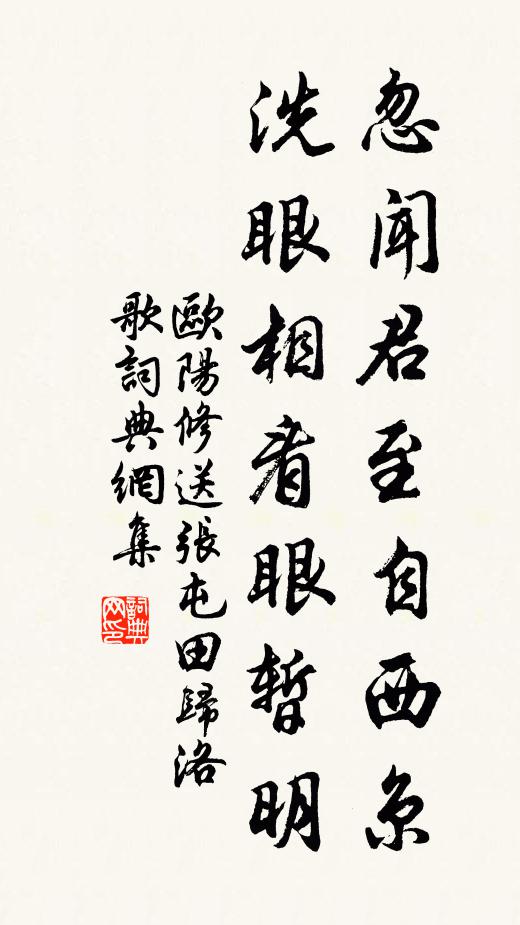 忽聞君至自西京
洗眼相看眼暫明
歐陽修送張屯田歸洛
歌詞典網集
詞典
网印